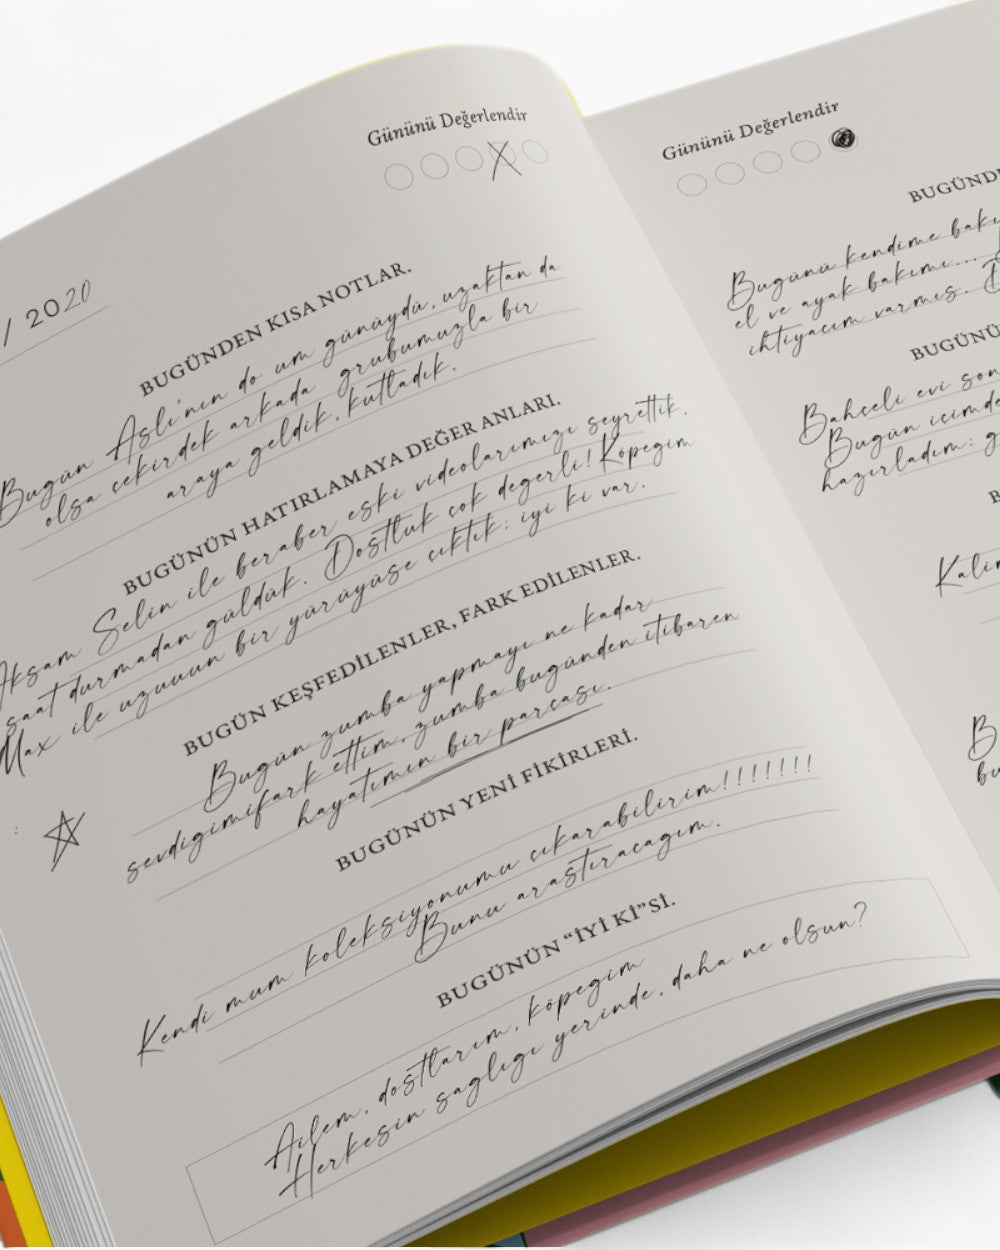 Gününü Değerlendir
/ 2020
BUGÜNDEN KISA NOTLAR.
Bugün Aslı'nın do um günüydü, uzaktan da
olsa çekirdek arkada grubumuzla bir
araya geldik, kutladık.
BUGÜNÜN HATIRLAMAYA DEĞER ANLARI.
Akşam Selin ile beraber eski videolarımızı seyrettik.
saat durmadan güldük. Dostluk çok değerli! Köpeğim
Max ile uzuuun bir yürüyüşe çıktık: iyi ki var.
BUGÜN KEŞFEDİLENLER, FARK EDİLENLER.
Bugün zumba yapmayı ne kadar
sevdiğimifark ettim, zumba bugünden itibaren
hayatımın bir parçası.
BUGÜNÜN YENİ FİKİRLERİ.
Kendi mum koleksiyonumu çıkarabilirim!!!!!!!
Bunu araştıracağım.
BUGÜNÜN “İYİ Kİ”Sİ.
Ailem, dostlarım, köpeğim
Herkesin sağlığı yerinde, daha ne olsun?
Gününü Değerlendir
BUGÜNDE
Bugünü kendime bakı
el ve ayak bakımı...
ihtiyacım varmış.
BUGÜNÜ
Bahçeli evi son
Bugün içimde
hazırladım: g
B
Kalın
B
bu